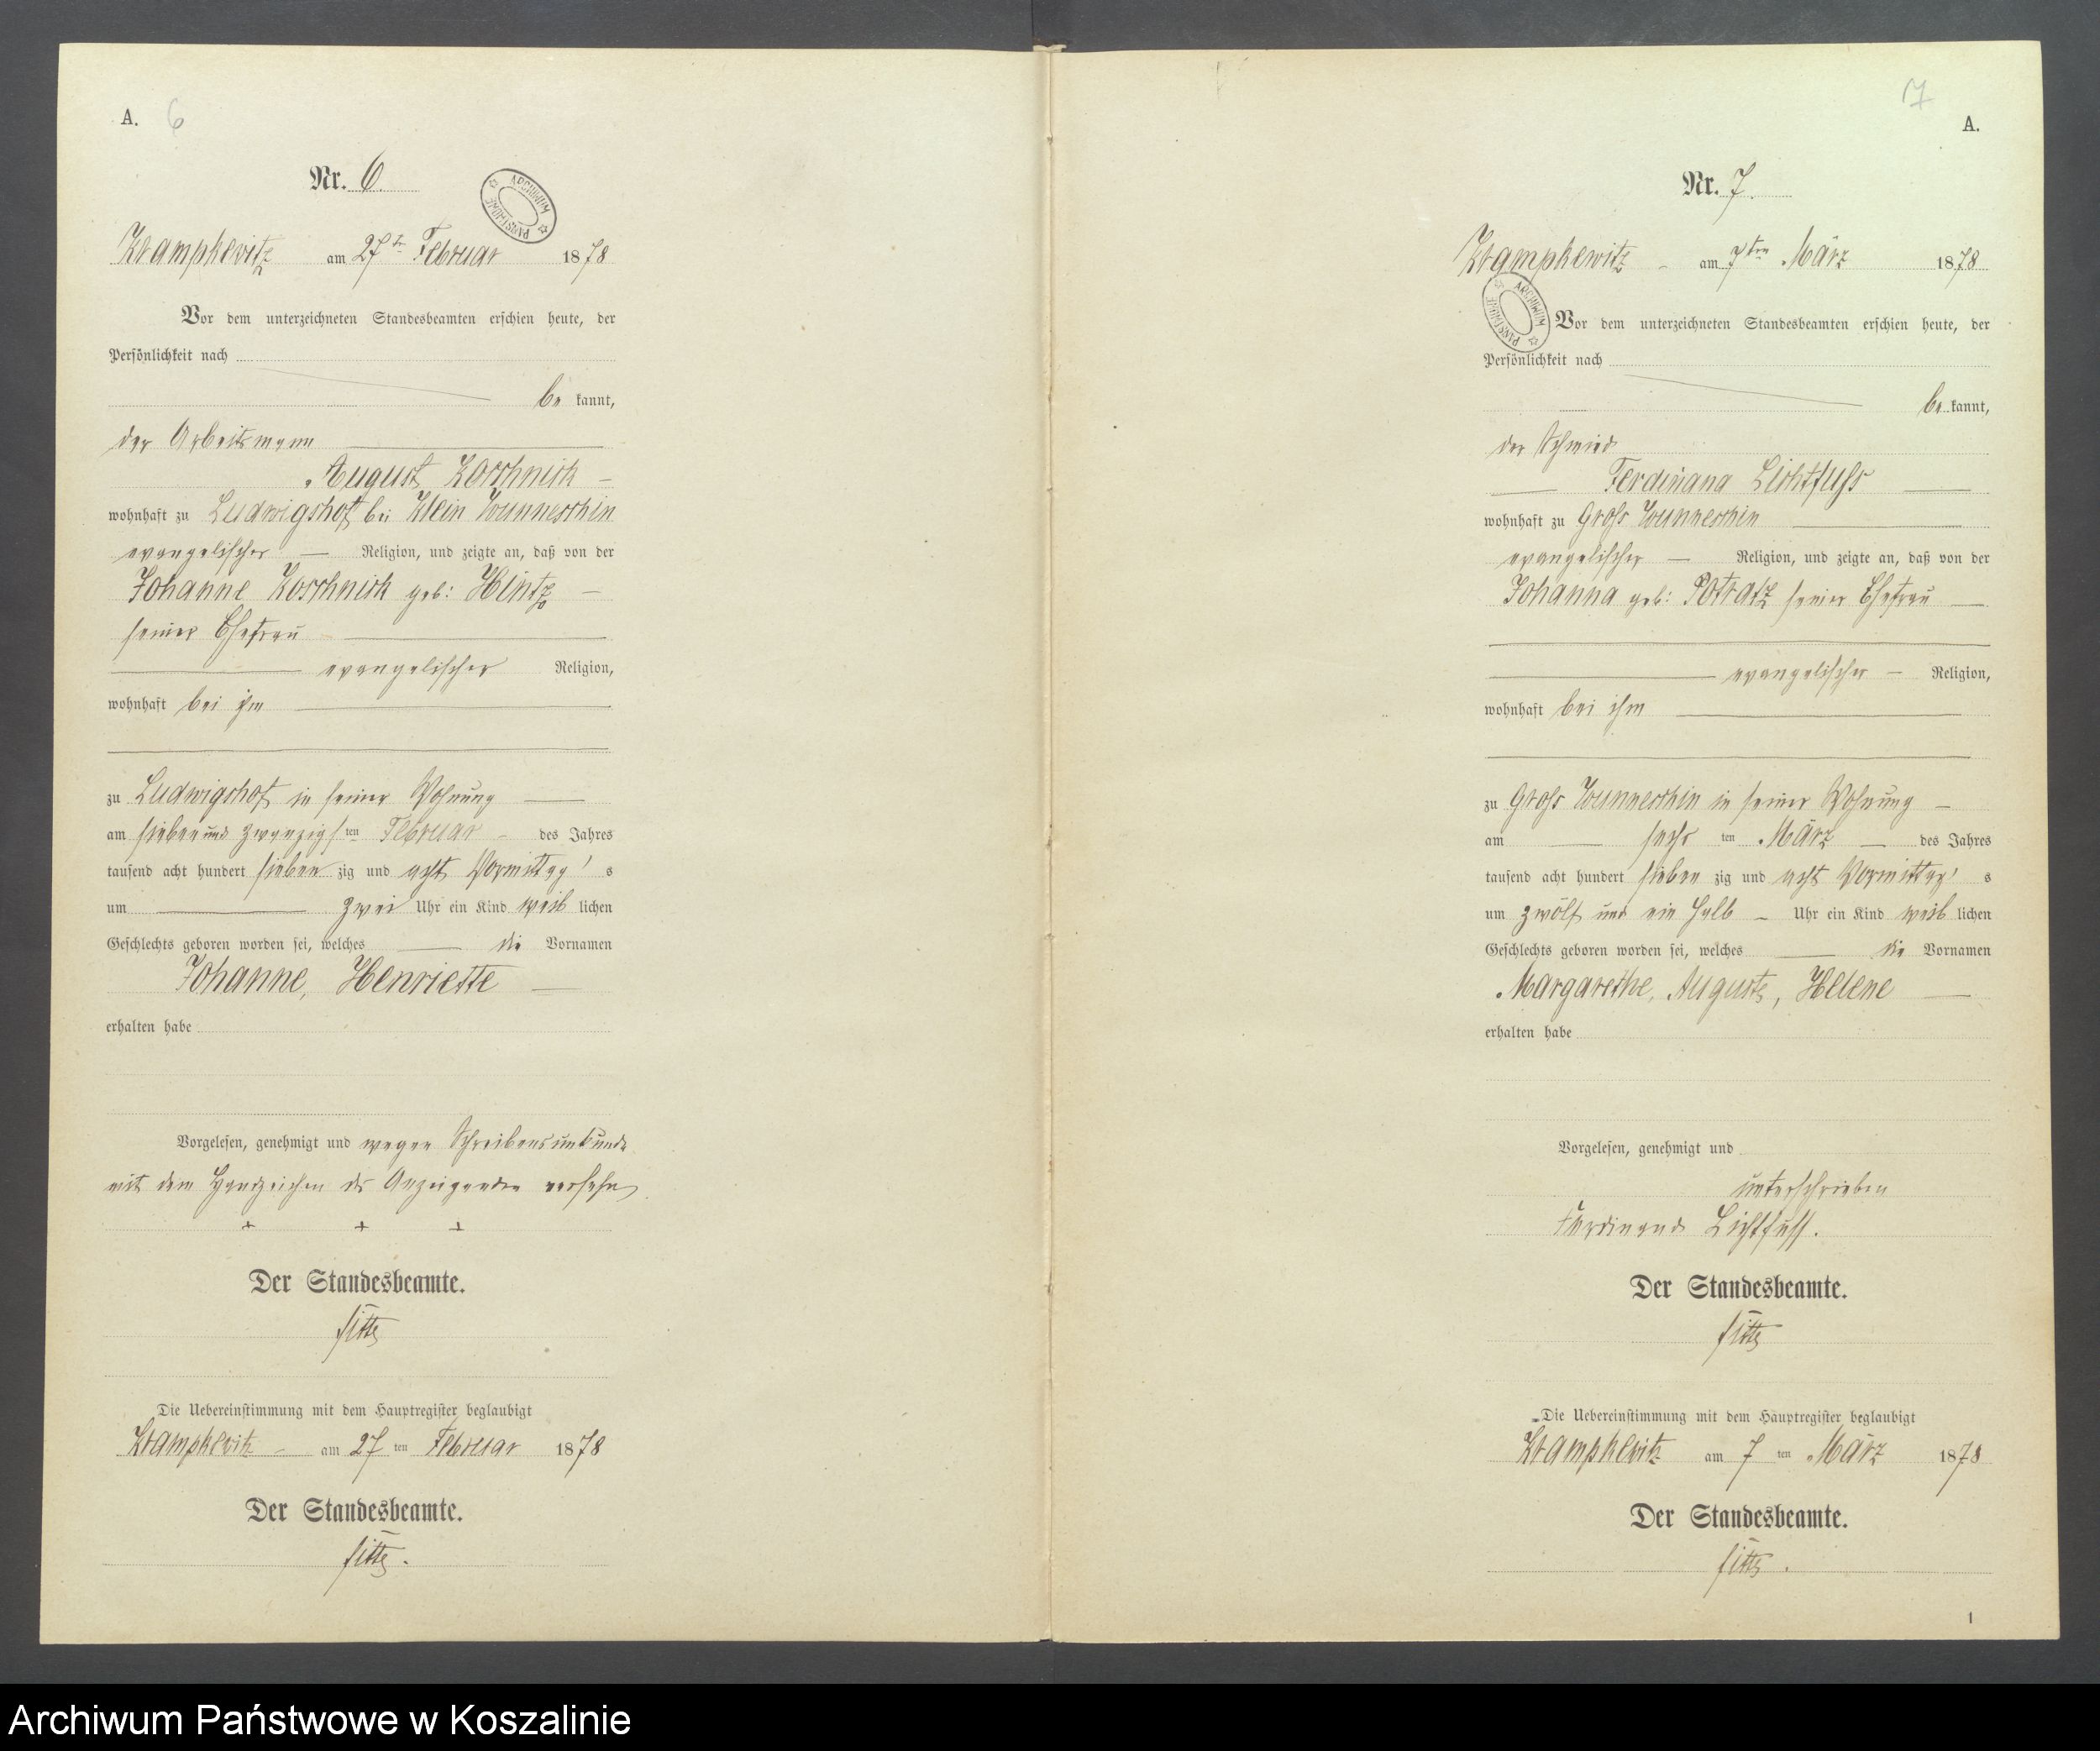 A. 6
Nr. 6.
ARCHIWUM PAŃSTWOWE
Krampkewitz am 27t Februar 1878
Vor dem unterzeichneten Standesbeamten erschien heute, der
Persönlichkeit nach
be kannt,
der Arbeitsmann
August Koschnick
wohnhaft zu Ludwigshof bei Klein Wunneschin
evangelischer Religion, und zeigte an, daß von der
Johanne Koschnick geb: Hintz
seiner Ehefrau
evangelischer Religion,
wohnhaft bei ihm
zu Ludwigshof in seiner Wohnung
am sieben und zwanzigs ten Februar des Jahres
tausend acht hundert sieben zig und acht Vormittag s
um zwei Uhr ein Kind weib lichen
Geschlechts geboren worden sei, welches die Vornamen
Johanne, Henriette
erhalten habe
Vorgelesen, genehmigt und wegen Schreibensunkunde
mit dem Handzeichen des Anzeigenden versehen
+ + +
Der Standesbeamte.
Die Uebereinstimmung mit dem Hauptregister beglaubigt
Krampkewitz am 27 ten Februar 1878
Der Standesbeamte.
7
A.
Nr. 7.
Krampkewitz am 7ten März 1878
ARCHIWUM PAŃSTWOWE
Vor dem unterzeichneten Standesbeamten erschien heute, der
Persönlichkeit nach
be kannt,
der Schmied
Ferdinand Lichtfuss
wohnhaft zu Gross Wunneschin
evangelischer Religion, und zeigte an, daß von der
Johanna geb: Potratz seiner Ehefrau
evangelischer Religion,
wohnhaft bei ihm
zu Gross Wunneschin in seiner Wohnung
am sechs ten März des Jahres
tausend acht hundert sieben zig und acht Vormittag s
um zwölf und ein halb Uhr ein Kind weib lichen
Geschlechts geboren worden sei, welches die Vornamen
Margarethe, Auguste, Helene
erhalten habe
Vorgelesen, genehmigt und
unterschrieben
Ferdinand Lichtfuss.
Der Standesbeamte.
Die Uebereinstimmung mit dem Hauptregister beglaubigt
Krampkewitz am 7 ten März 1878
Der Standesbeamte.
1
Archiwum Państwowe w Koszalinie